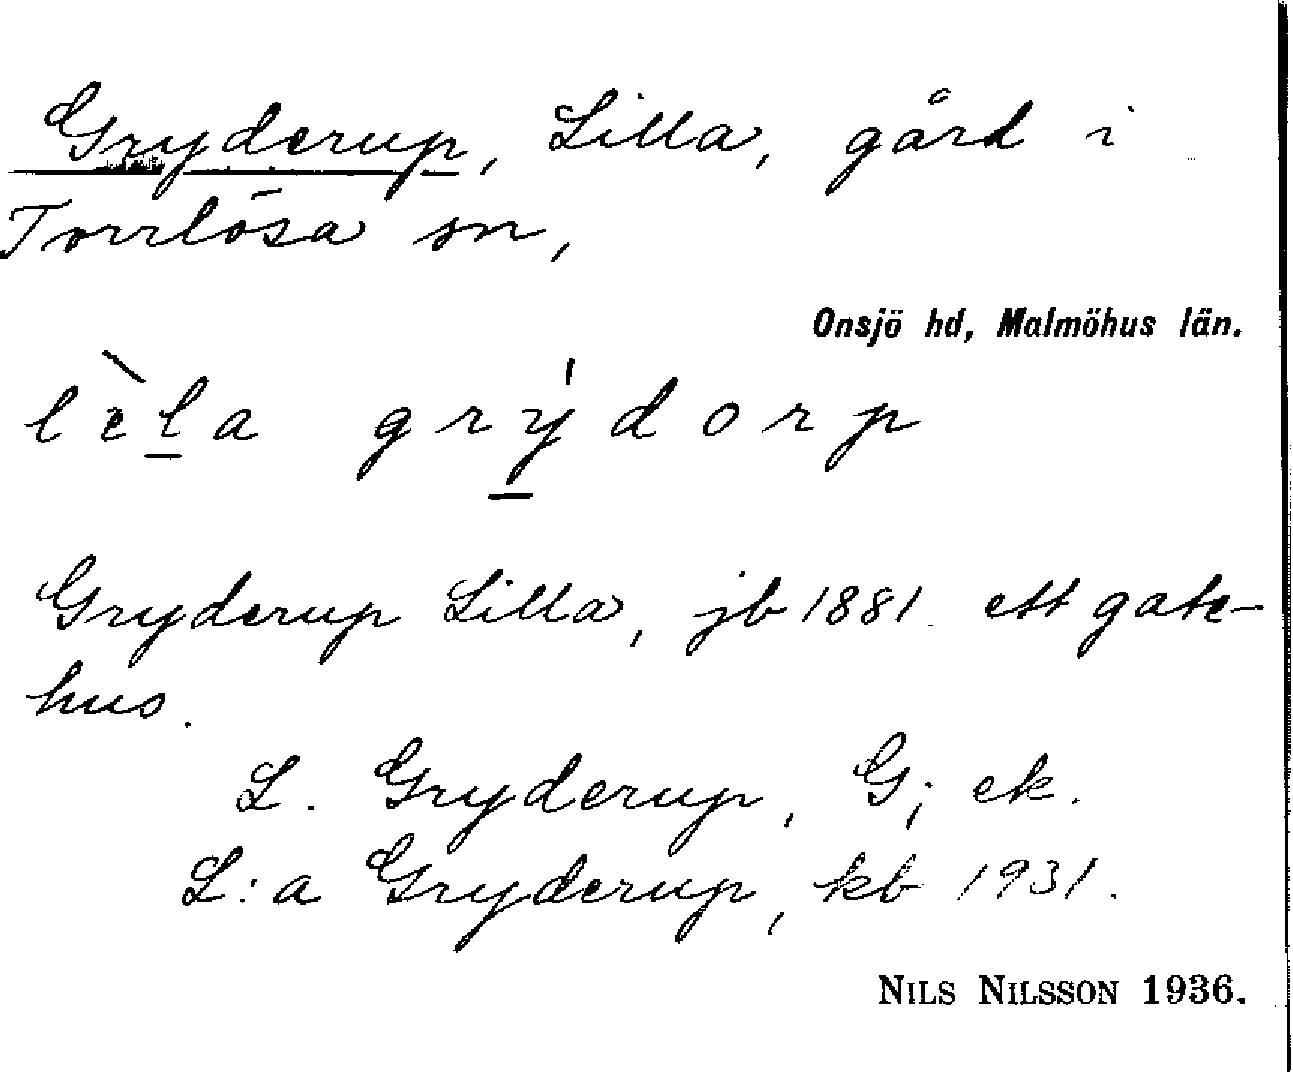 Gryderup, Lilla, gård i
Torrlösa sn,
Onsjö hd, Malmöhus län.
lèla grýdorp
Gryderup Lilla, jb 1881 ett gate-
hus.
L. Gryderup, G; ek.
L:a Gryderup, kb 1931.
NILS NILSSON 1936.